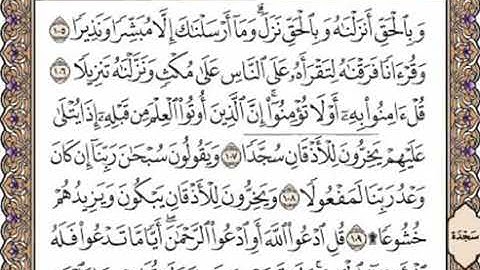 وَبِٱلْحَقِّ أَنزَلْنَٰهُ وَبِٱلْحَقِّ نَزَلَ ۗ وَمَآ أَرْسَلْنَٰكَ إِلَّا مُبَشِّرًا وَنَذِيرًا ١٠٥
وَقُرْءَانًا فَرَقْنَٰهُ لِتَقْرَأَهُۥ عَلَى ٱلنَّاسِ عَلَىٰ مُكْثٍ وَنَزَّلْنَٰهُ تَنزِيلًا ١٠٦
قُلْ ءَامِنُوا۟ بِهِۦٓ أَوْ لَا تُؤْمِنُوٓا۟ ۚ إِنَّ ٱلَّذِينَ أُوتُوا۟ ٱلْعِلْمَ مِن قَبْلِهِۦٓ إِذَا يُتْلَىٰ
عَلَيْهِمْ يَخِرُّونَ لِلْأَذْقَانِ سُجَّدًا ١٠٧ وَيَقُولُونَ سُبْحَٰنَ رَبِّنَآ إِن كَانَ
وَعْدُ رَبِّنَا لَمَفْعُولًا ١٠٨ وَيَخِرُّونَ لِلْأَذْقَانِ يَبْكُونَ وَيَزِيدُهُمْ
خُشُوعًا ۩ ١٠٩ قُلِ ٱدْعُوا۟ ٱللَّهَ أَوِ ٱدْعُوا۟ ٱلرَّحْمَٰنَ ۖ أَيًّا مَّا تَدْعُوا۟ فَلَهُ
سَجْدَة